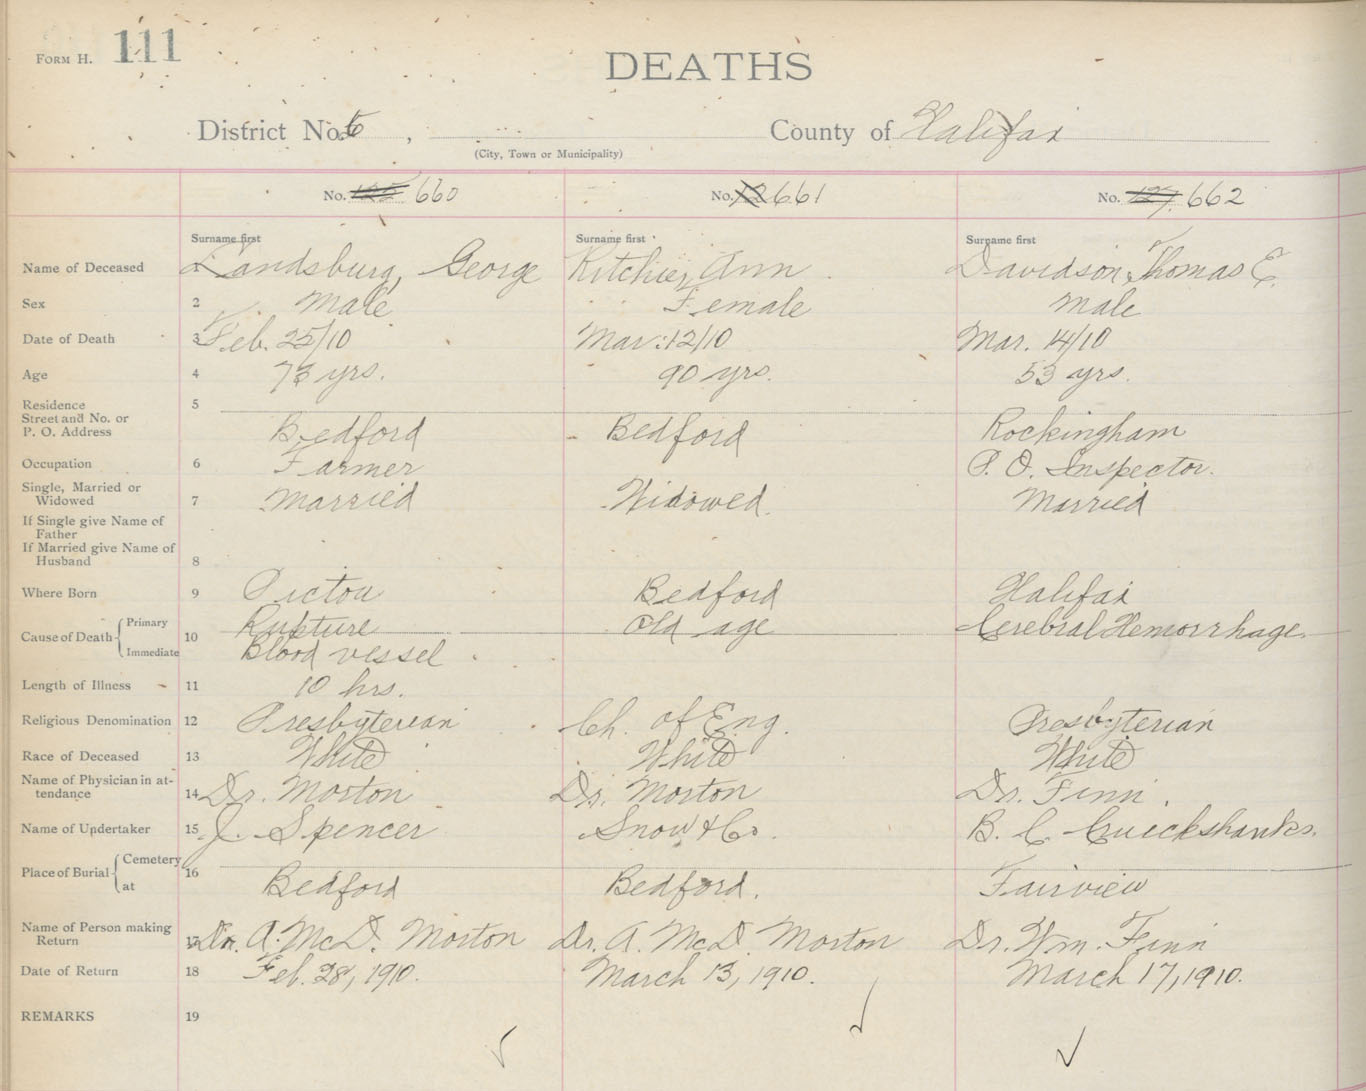 FORM H. 111
DEATHS
District No. 6 , County of Halifax
(City, Town or Municipality)
No. 660 No. 661 No. 662
Surname first Surname first Surname first
Name of Deceased Landsburg, George Ritchie, Ann Davidson, Thomas E.
Sex 2 Male Female Male
Date of Death 3 Feb. 25/10 Mar. 12/10 Mar. 14/10
Age 4 73 yrs. 90 yrs. 53 yrs.
Residence 5
Street and No. or
P. O. Address Bedford Bedford Rockingham
Occupation 6 Farmer P. O. Inspector.
Single, Married or
Widowed 7 Married Widowed. Married
If Single give Name of
Father
If Married give Name of
Husband 8
Where Born 9 Pictou Bedford Halifax
Cause of Death Primary 10 Rupture Old age Cerebral Hemorrhage.
Immediate Blood vessel
Length of Illness 11 10 hrs.
Religious Denomination 12 Presbyterian Ch. of Eng. Presbyterian
Race of Deceased 13 White White White
Name of Physician in at-
tendance 14 Dr. Morton Dr. Morton Dr. Finn.
Name of Undertaker 15 J. Spencer Snow & Co. B. C. Cruickshanks.
Place of Burial Cemetery 16
at Bedford Bedford. Fairview
Name of Person making
Return 17 Dr. A. McD. Morton Dr. A. McD. Morton Dr. Wm. Finn
Date of Return 18 Feb. 28, 1910. March 13, 1910. March 17, 1910.
REMARKS 19